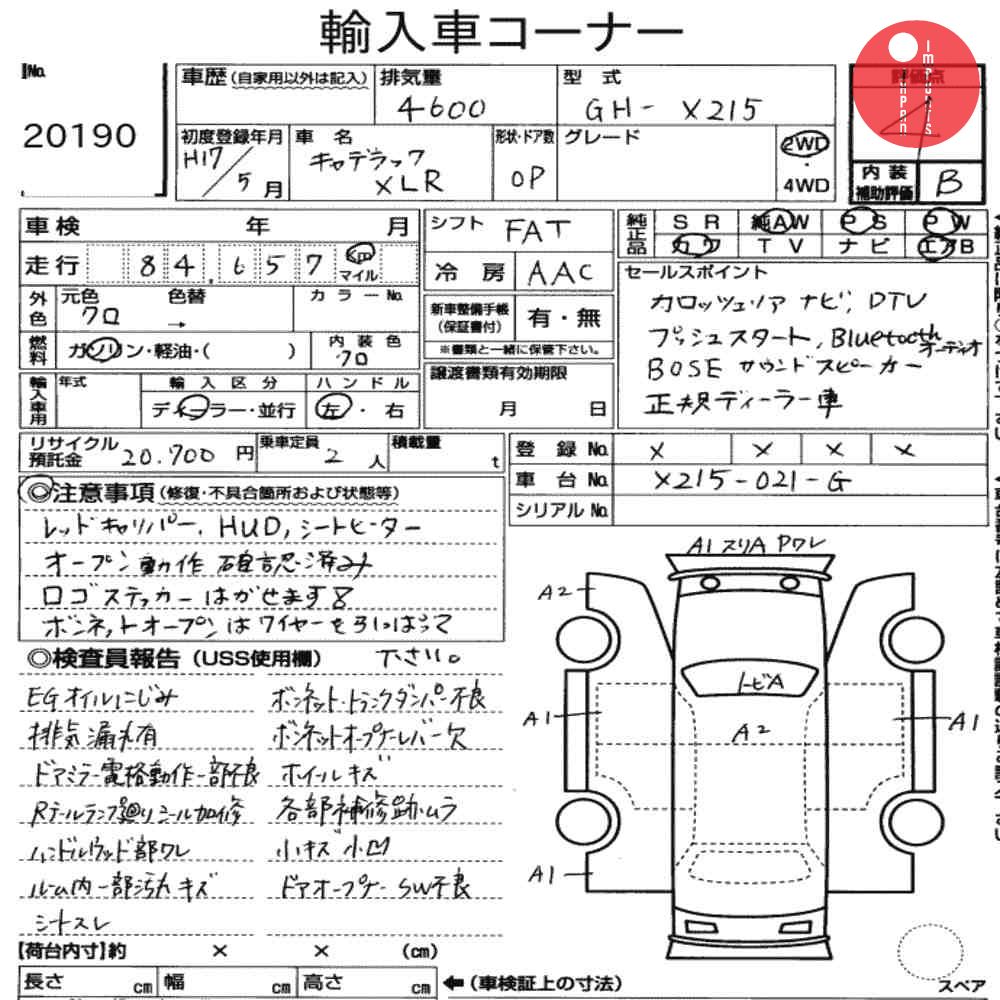 輸入車コーナー
No.
20190
車歴 (自家用以外は記入) 排気量 型式 評価点
4600 GH- X215 4
初度登録年月 車名 形状・ドア数 グレード
H17/5月 キャデラック XLR OP 2WD・4WD
内装補助評価 B
車検 年 月 シフト FAT 純正品 SR 純AW PS PW
カワ TV ナビ エアB
走行 84,657 km マイル 冷房 AAC
セールスポイント
外色 元色 クロ 色替 → カラーNo.
カロッツェリア ナビ、DTV
プッシュスタート、Bluetooth オーディオ
BOSE サウンドスピーカー
正規ディーラー車
新車整備手帳(保証書付) 有・無
※書類と一緒に保管下さい。
燃料 ガソリン・軽油・( ) 内装色 クロ
譲渡書類有効期限
月 日
輸入車用 年式 輸入区分 ハンドル
ディーラー・並行 左・右
リサイクル預託金 20,700円 乗車定員 2人 積載量 t
登録No. X X X X
車台No. X215-021-G
シリアルNo.
◎注意事項 (修復・不具合箇所および状態等)
レッドキャリパー、HUD、シートヒーター
オープン動作確認済み
ロゴステッカーはがせます
ボンネットオープンはワイヤーを引っぱって
下さい。
◎検査員報告 (USS使用欄)
EGオイルにじみ
排気漏れ有
ドアミラー電格動作一部不良
Rテールランプ廻りシール加修
ハンドルウッド部ワレ
ルーム内一部汚れ キズ
シートスレ
ボンネット・トランクダンパ不良
ボンネットオープナーレバー欠
ホイールキズ
各部補修跡ムラ
小キズ 小凹
ドアオープナーSW不良
A1 スリA Pワレ
A2
トビA
A1
A2
A1
A1
【荷台内寸】約 × × (cm)
長さ cm 幅 cm 高さ cm ←(車検証上の寸法)
スペア
IMPORTS
JAPAN